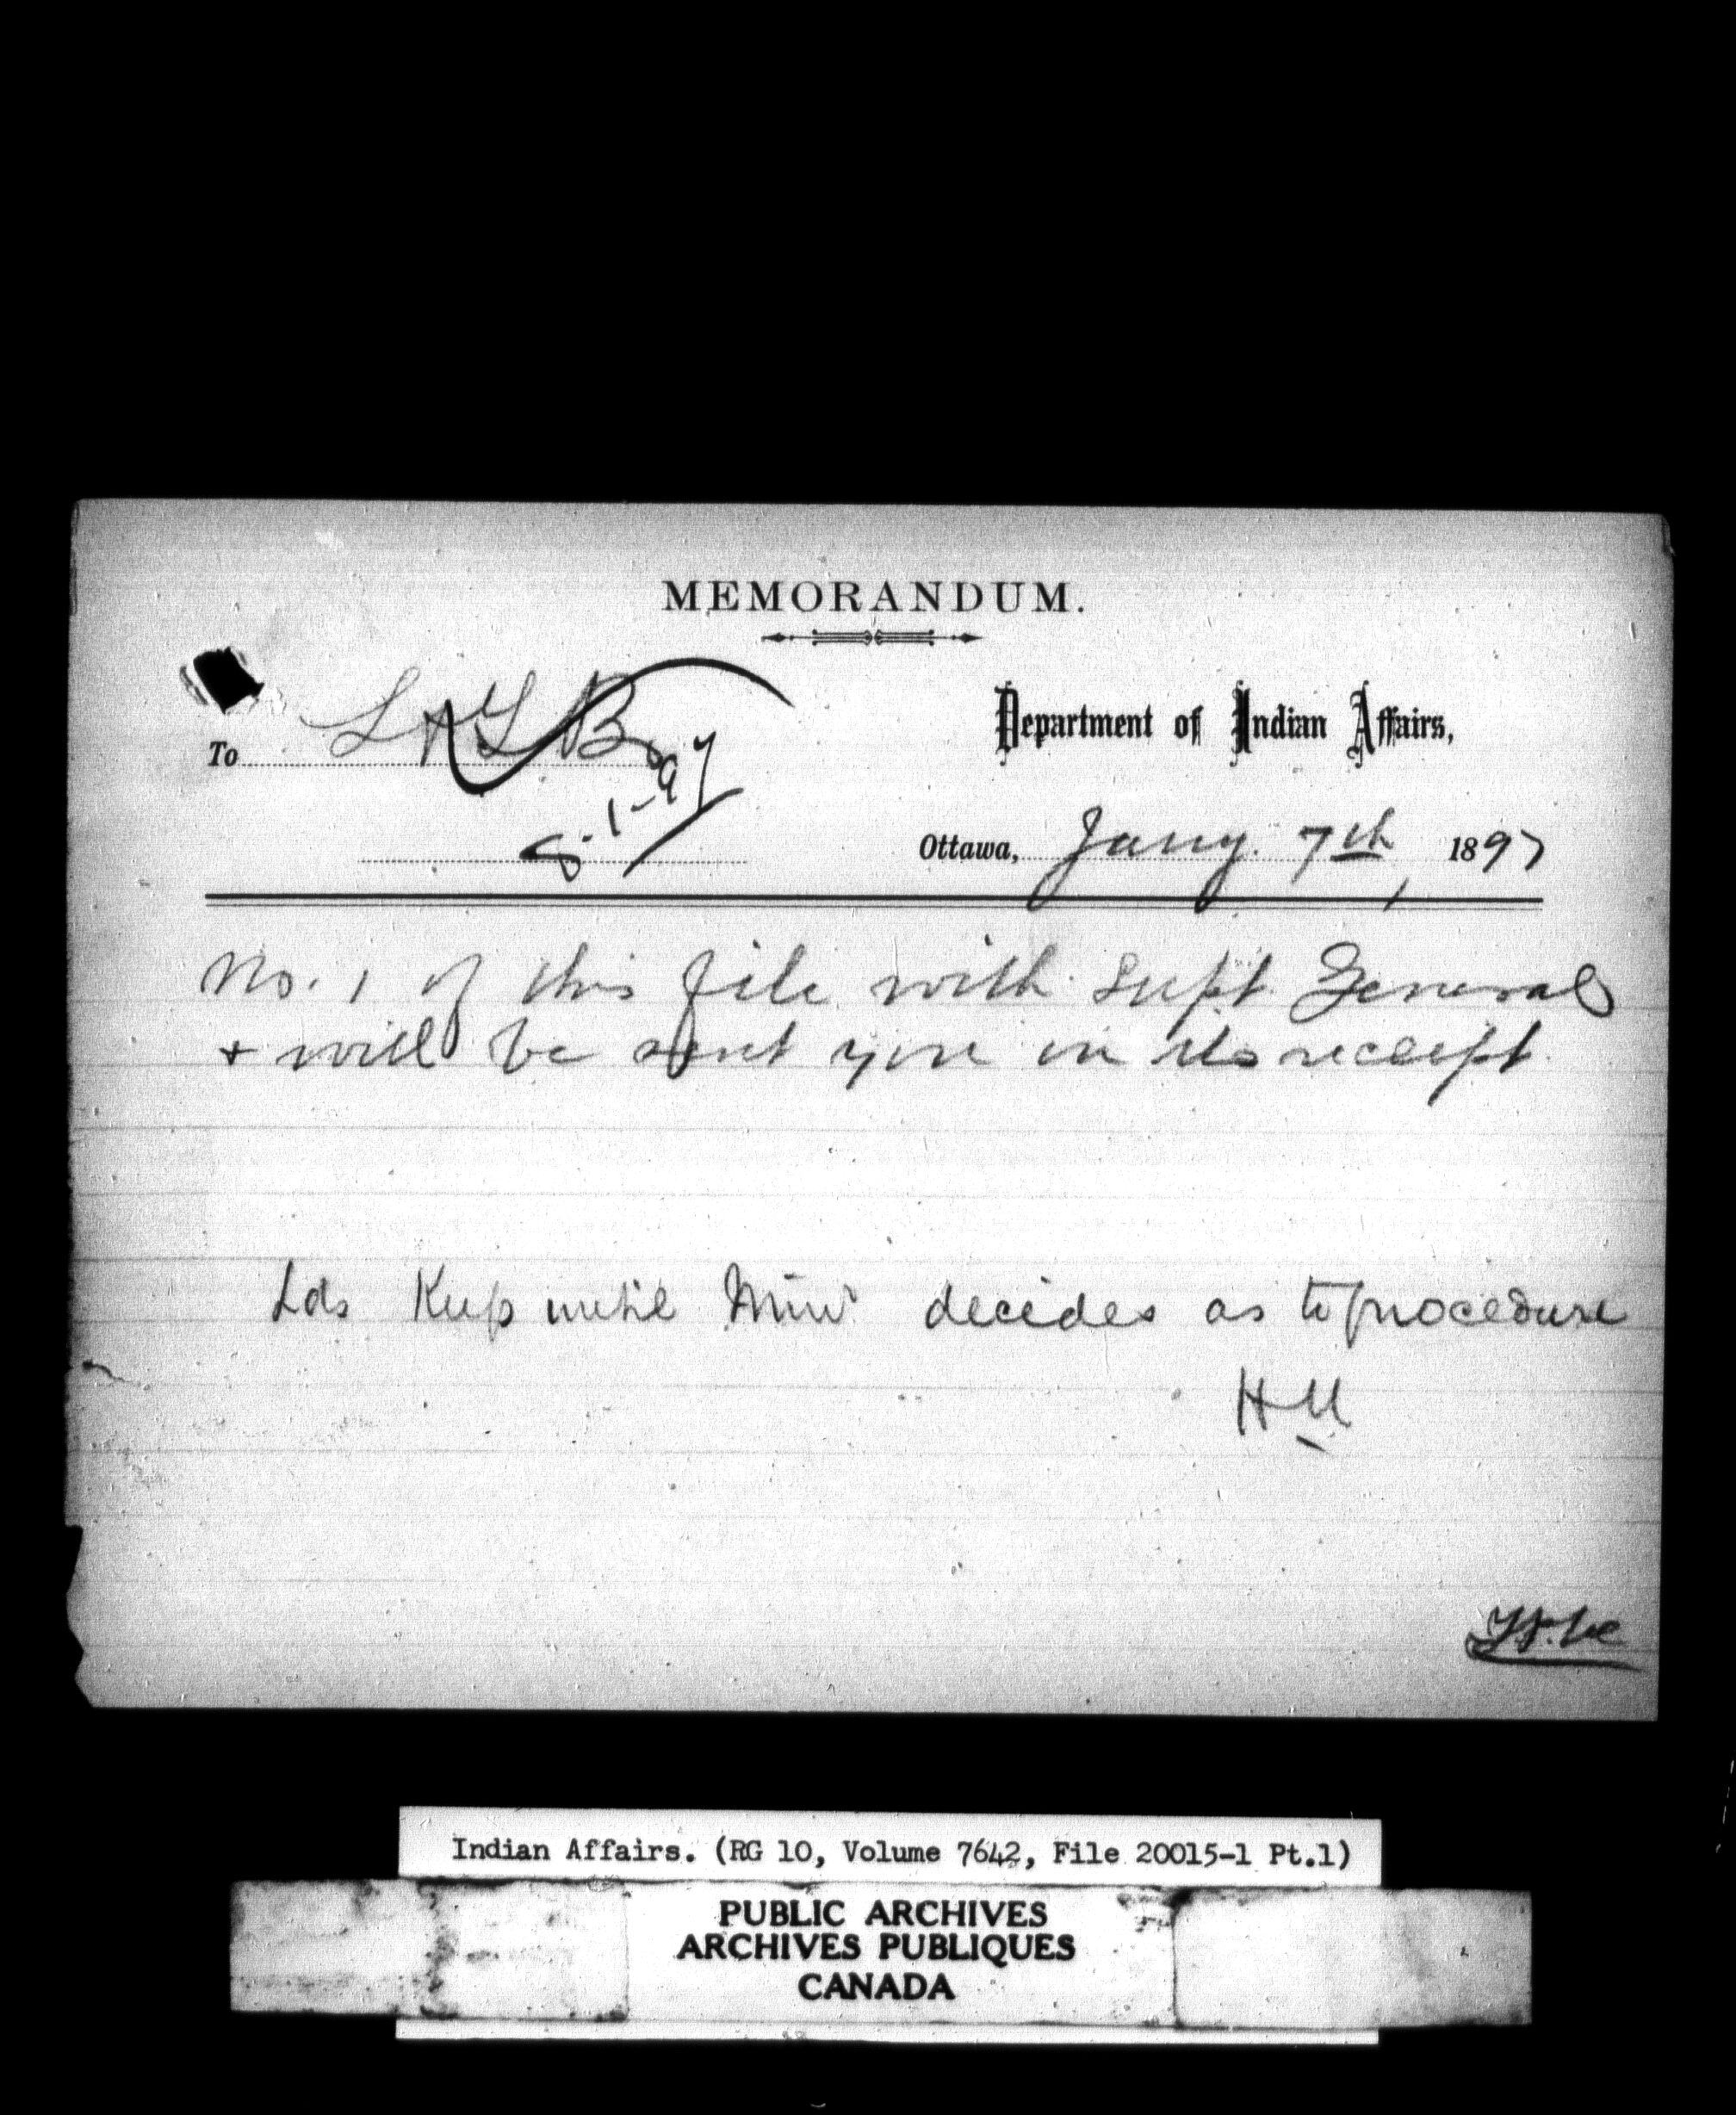 MEMORANDUM.
Department of Indian Affairs,
To L & T B
8-1-97
Ottawa, Jany. 7th, 1897
No. 1 of this file with Supt. General
+ will be sent you on its receipt.
Lds Keep until decides as to procedure
HM
Indian Affairs. (RG 10, Volume 7642, File 20015-1 Pt.1)
PUBLIC ARCHIVES
ARCHIVES PUBLIQUES
CANADA